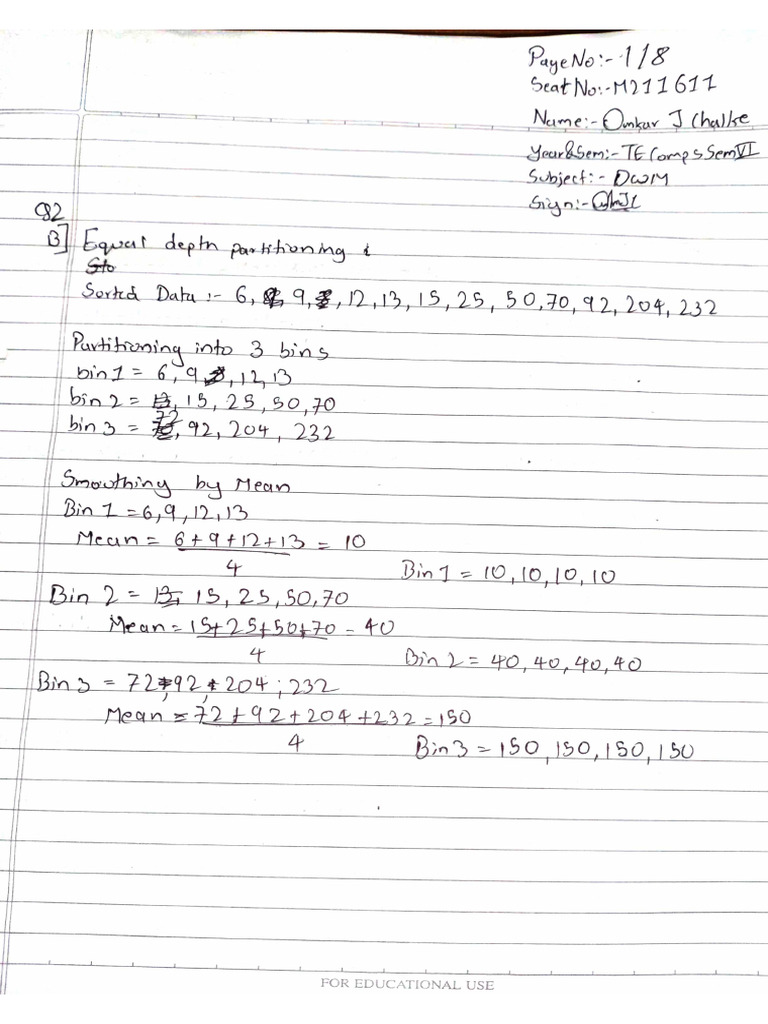 Page No:- 1/8
Seat No:- M211611
Name:- Omkar J Chalke
Year&Sem:- TE Comps Sem VI
Subject:- DWM
Sign:-
Q2
B] Equal depth partitioning :
Sto
Sorted Data :- 6, 9, 12, 13, 15, 25, 50, 70, 92, 204, 232
Partitioning into 3 bins
bin 1 = 6, 9, 12, 13
bin 2 = 15, 25, 50, 70
bin 3 = 72, 92, 204, 232
Smoothing by Mean
Bin 1 = 6, 9, 12, 13
Mean = 6+9+12+13 = 10
4
Bin 1 = 10, 10, 10, 10
Bin 2 = 13, 15, 25, 50, 70
Mean = 15+25+50+70 = 40
4
Bin 2 = 40, 40, 40, 40
Bin 3 = 72, 92, 204, 232
Mean = 72+92+204+232 = 150
4
Bin 3 = 150, 150, 150, 150
FOR EDUCATIONAL USE